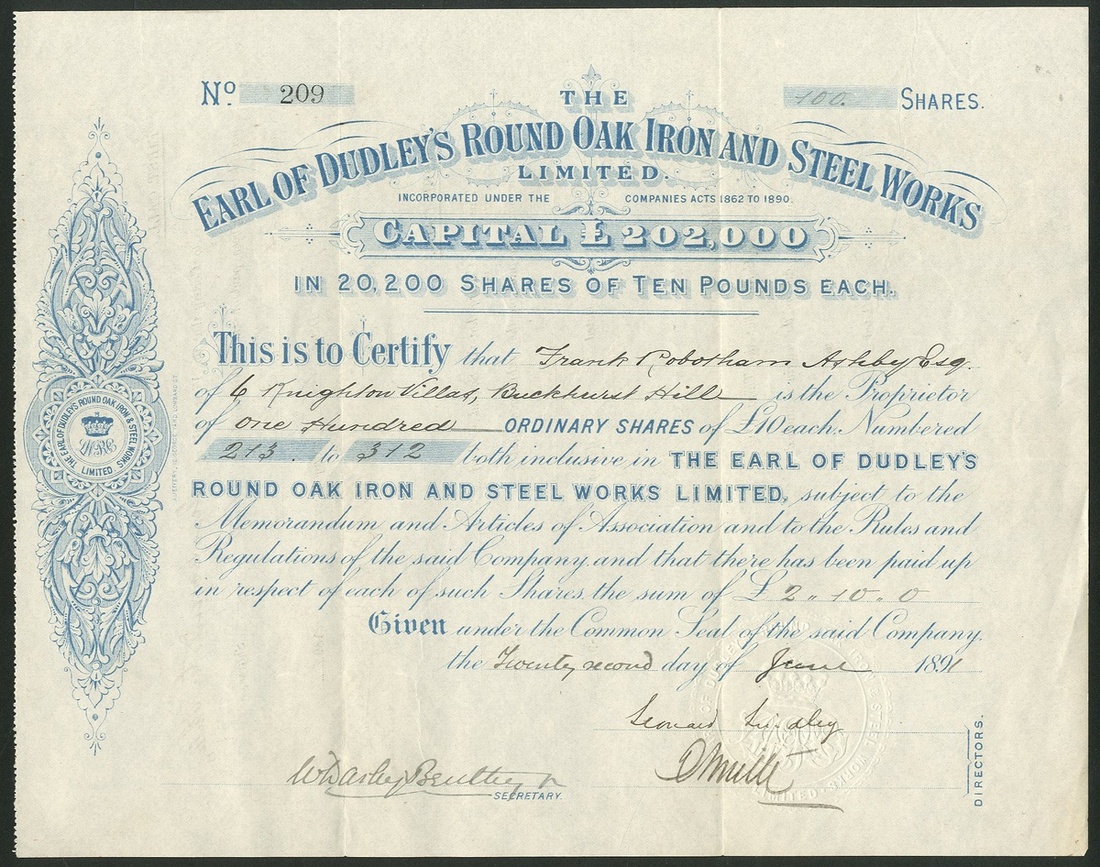 No. 209
100. SHARES.
THE
EARL OF DUDLEY'S ROUND OAK IRON AND STEEL WORKS
LIMITED.
INCORPORATED UNDER THE COMPANIES ACTS 1862 TO 1890.
CAPITAL £202,000
IN 20,200 SHARES OF TEN POUNDS EACH.
This is to Certify that Frank Robotham Ashby Esq.
of 6 Knighton Villas, Buckhurst Hill is the Proprietor
of One Hundred ORDINARY SHARES of £10 each. Numbered
213 to 312 both inclusive in THE EARL OF DUDLEY'S
ROUND OAK IRON AND STEEL WORKS LIMITED, subject to the
Memorandum and Articles of Association and to the Rules and
Regulations of the said Company and that there has been paid up
in respect of each of such Shares the sum of £ 2 " 10 " 0
Given under the Common Seal of the said Company.
the Twenty second day of June 1891
Leonard Lindley
SECRETARY.
DIRECTORS.
THE EARL OF DUDLEY'S ROUND OAK IRON & STEEL WORKS
LIMITED